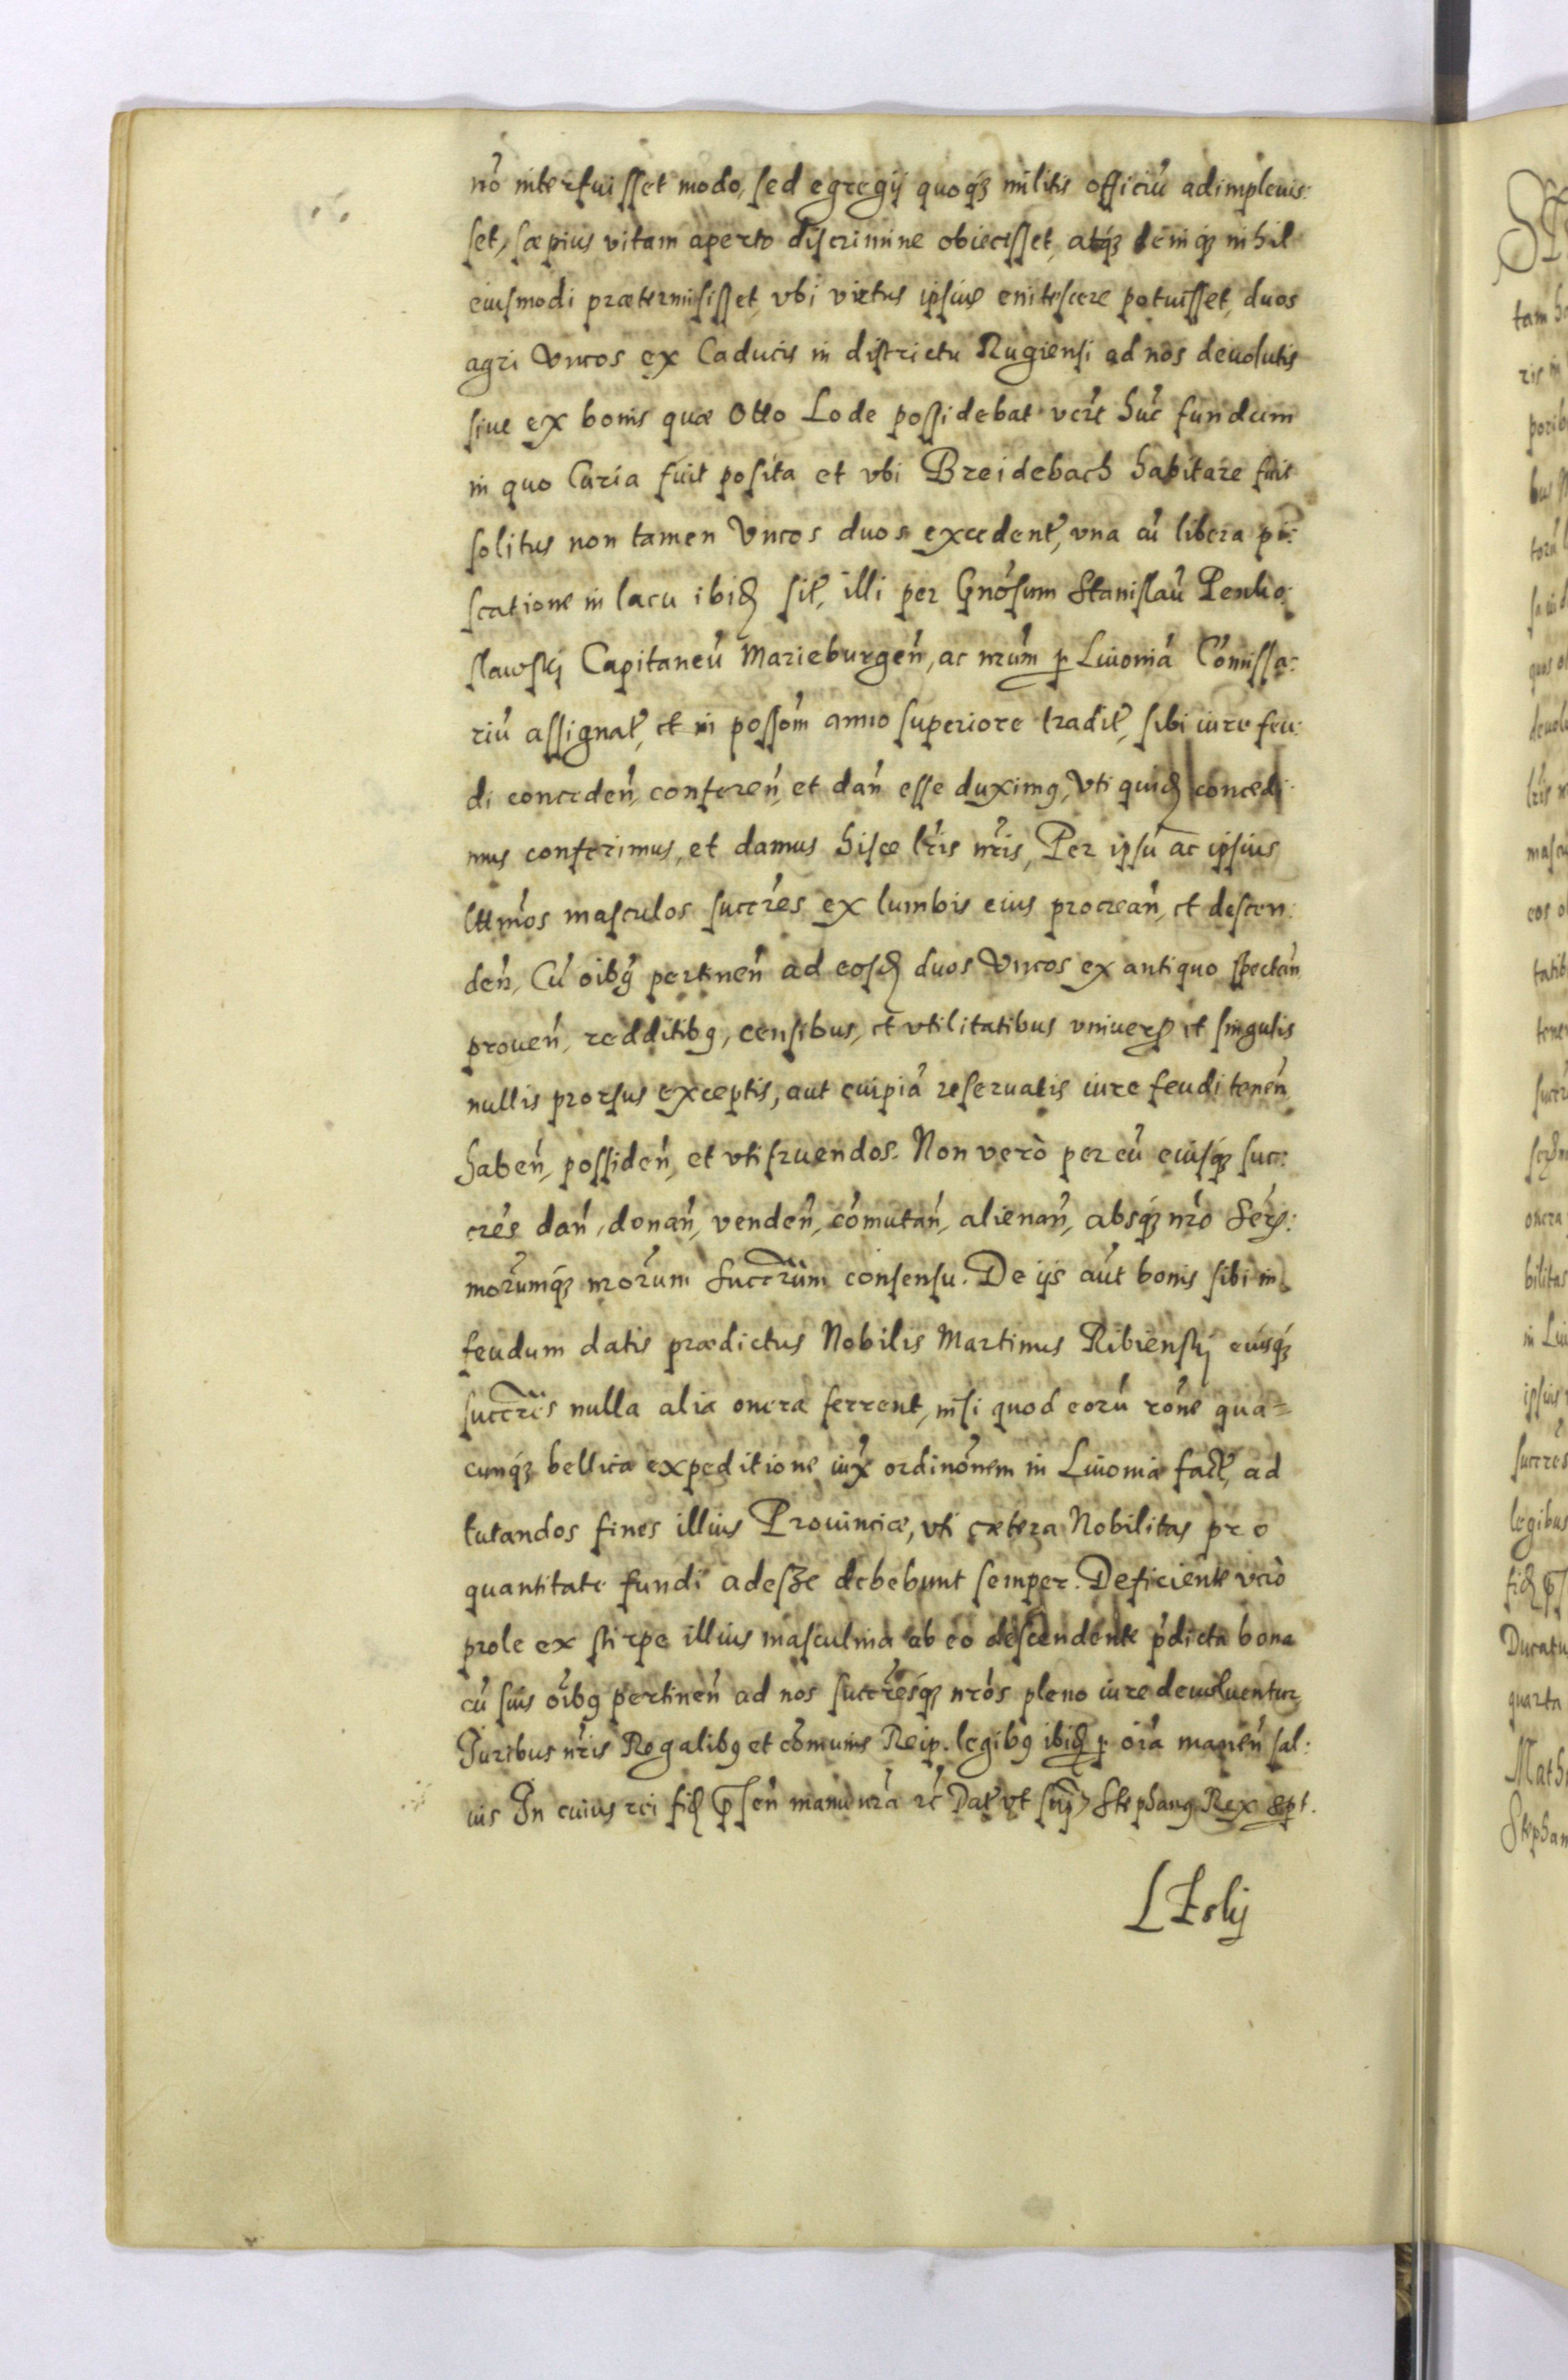 nō interfuisset modo, sed egregij quoqз militis officiū adimpleuis:
set, sæpius vitam aperto discrimine obiecisset, atqз deniqз nihil
eiusmodi prætermisisset, vbi virtus ipsius enitescere potuisset, duos
agri Vncos ex Caducis in districtu Rugiensi ad nos deuolutis
siue ex bonis quæ Otto Lode possidebat hūc fundum
in quo Curia fuit posita et vbi Breidebach habitare fuit
solitus non tamen Vncos duos excedenť, vna cū libera pi:
scatione in lacu ibiđ siť, illi per Gnōsum Stanislaū Penko:
slawskj Capitaneū Marieburgeń, ac nrūm p Liuoniā Cōmissa:
riū assignať, et in possōm anno superiore tradiť, sibi iure feu:
di conceden̄, conferen̄, et dan̄ esse duximꝰ, Vti quiđ concedi:
mus conferimus, et damus hisce lr̄is nr̄is, Per ipsū ac ipsius
lttmōs masculos succr̄es ex lumbis eius procrean̄, et descen:
den̄, Cū oībꝰ pertinen̄ ad eosđ duos Vncos ex antiquo spectan̄
prouen̄, redditibꝰ, censibus, et vtilitatibus vniuers et singulis
nullis prorsus exceptis, aut cuipiā reseruatis iure feudi tenen̄
haben̄, possiden̄, et vtifruendos. Non verò per eū eiusqз suc:
cr̄es dan̄, donan̄, venden̄, cōmutan̄, alienan̄, absqз nr̄o Ser:
morūmqз nrorum Succr̄um consensu. De ijs aūt bonis sibi in
feudum datis prædictus Nobilis Martinus Ribienskj eiusqз
succr̄es nulla alia onera ferrent, nisi quod eorū rōne qua=
cunqз bellica expeditione iux̄ ordinōnem in Liuonia facť, ad
tutandos fines illius Prouinciæ, vti cætera Nobilitas pro
quantitate fundi adesse debebunt semper. Deficiente verò
prole ex stirpe illius masculina ab eo descendente p̄dicta bona
cū suis oībꝰ pertinen̄ ad nos succr̄esqз nrōs pleno iure deuoluentur
Juribus nr̄is Regalibꝰ et cōmunis Reip. legibꝰ ibiđ p oīa manen̄ sal:
uis In cuius rei fiđ p̄sen̄ manu nrā rc̄ Dať vt sup̄ Stephanꝰ Rex spt.